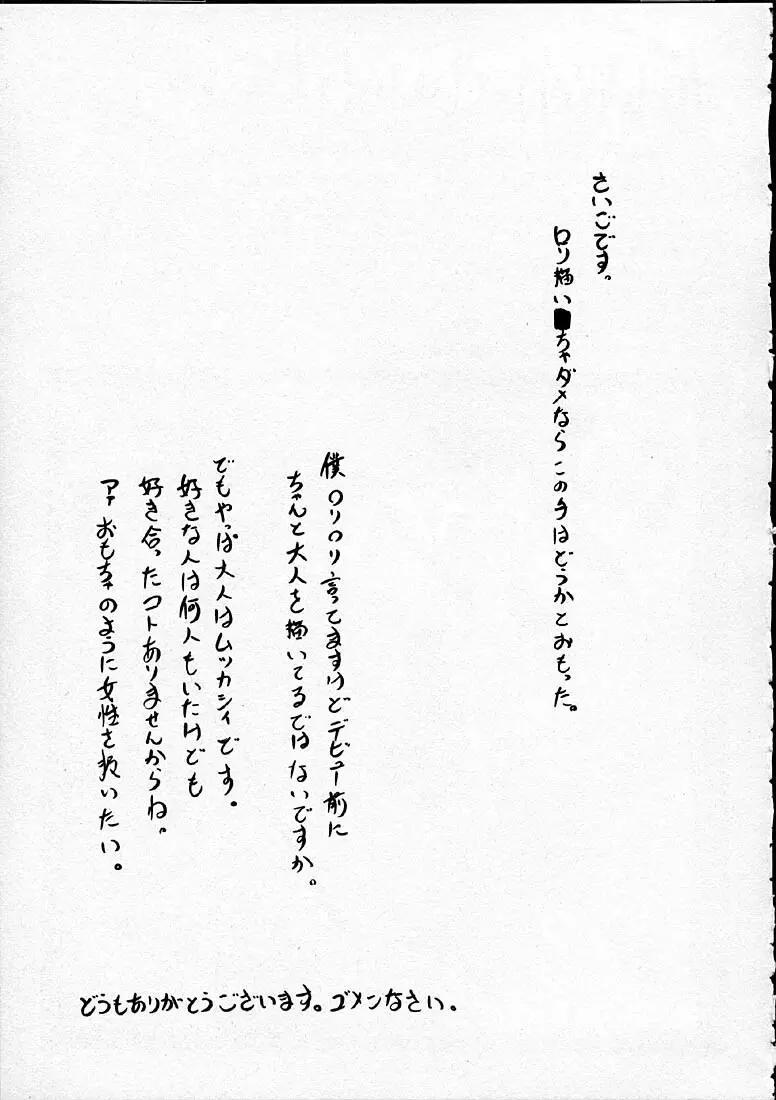 さいごです。
ロリ描いちゃダメならこの手はどうかとおもった。
僕ロリロリ言ってますけどデビュー前に
ちゃんと大人を描いてるではないですか。
でもやっぱ大人はムッカシィです。
好きな人は何人もいたけども
好き合ったコトありませんからね。
アァおもちゃのように女性を扱いたい。
どうもありがとうございます。ゴメンなさい。